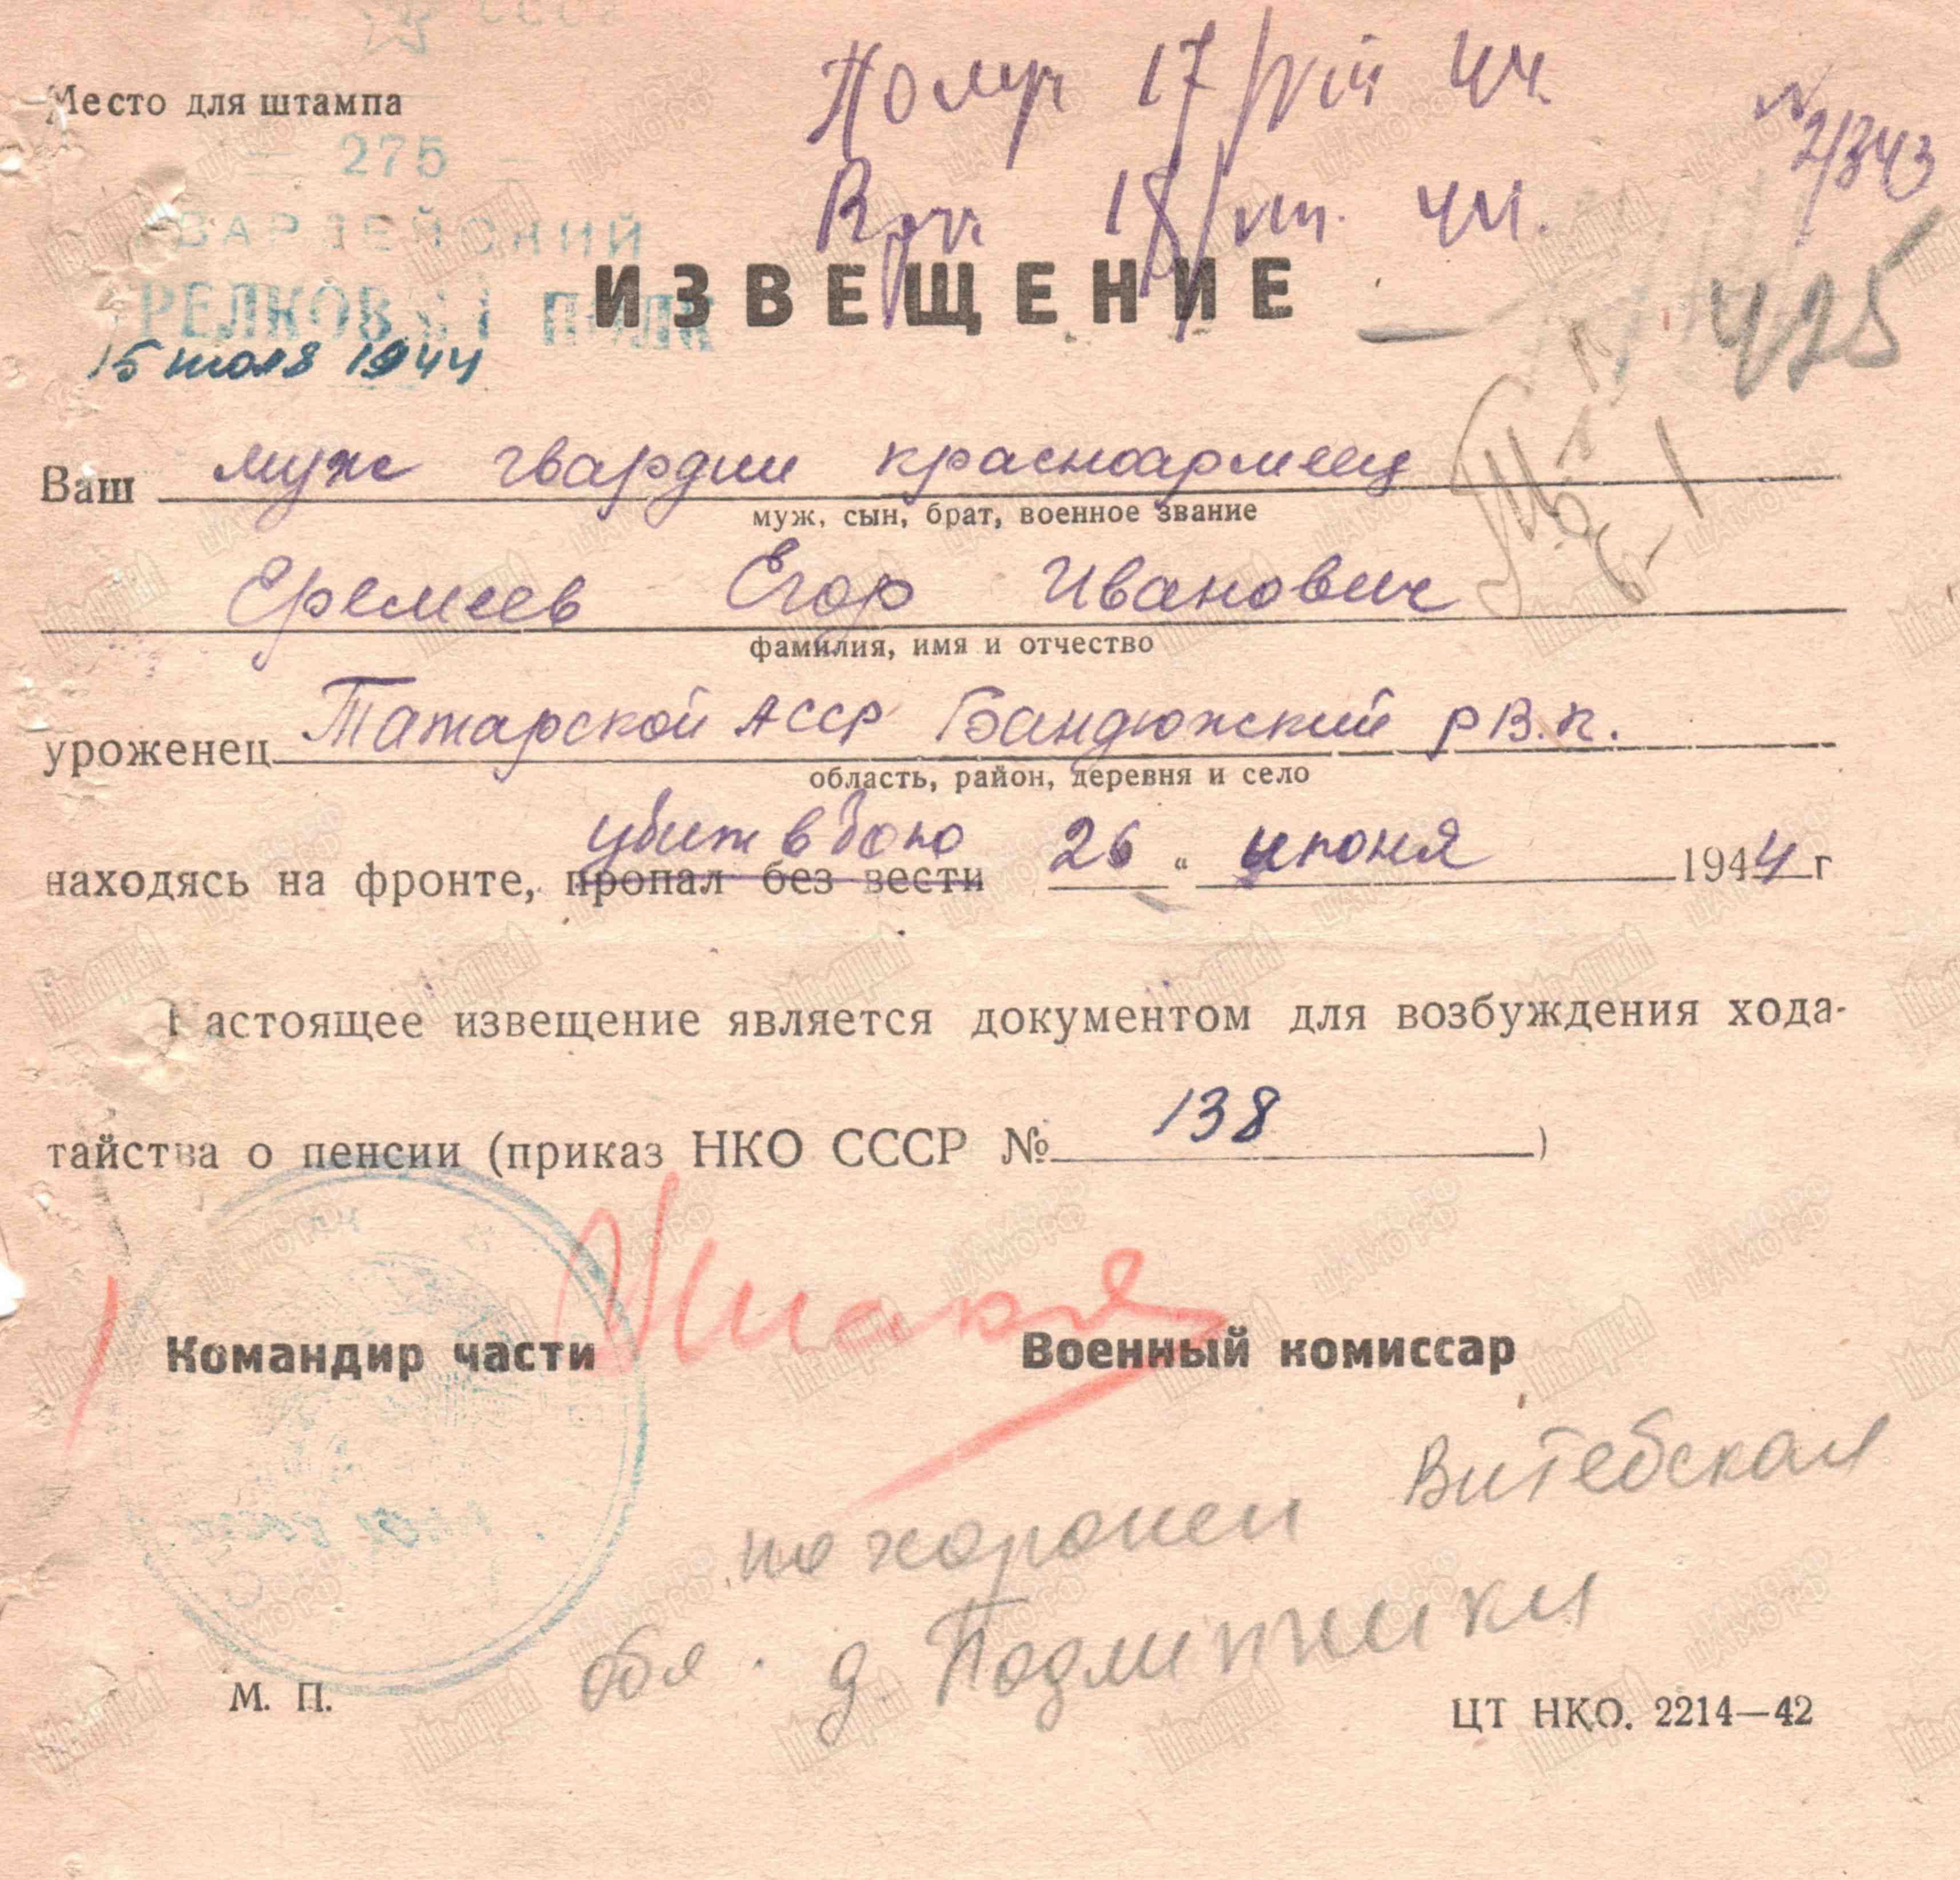 СССР
Место для штампа
Получ 17/VIII 44.
Вруч. 18/VIII. 44.
№ 2/343
— 275 —
ВАРДЕЙСКИЙ
РЕЛКОВЫЙ ПОЛК
15 июля 1944
ИЗВЕЩЕНИЕ
425
Ваш муж гвардии красноармеец
муж, сын, брат, военное звание
Еремеев Егор Иванович
фамилия, имя и отчество
уроженец Татарской АССР Бандюжский РВ.К.
область, район, деревня и село
убит в бою
находясь на фронте, пропал без вести 26 " июня 1944 г
Настоящее извещение является документом для возбуждения хода-
тайства о пенсии (приказ НКО СССР № 138 )
Командир части Военный комиссар
похоронен Витебская
обл. д. Подлипники
М. П.
ЦТ НКО. 2214—42